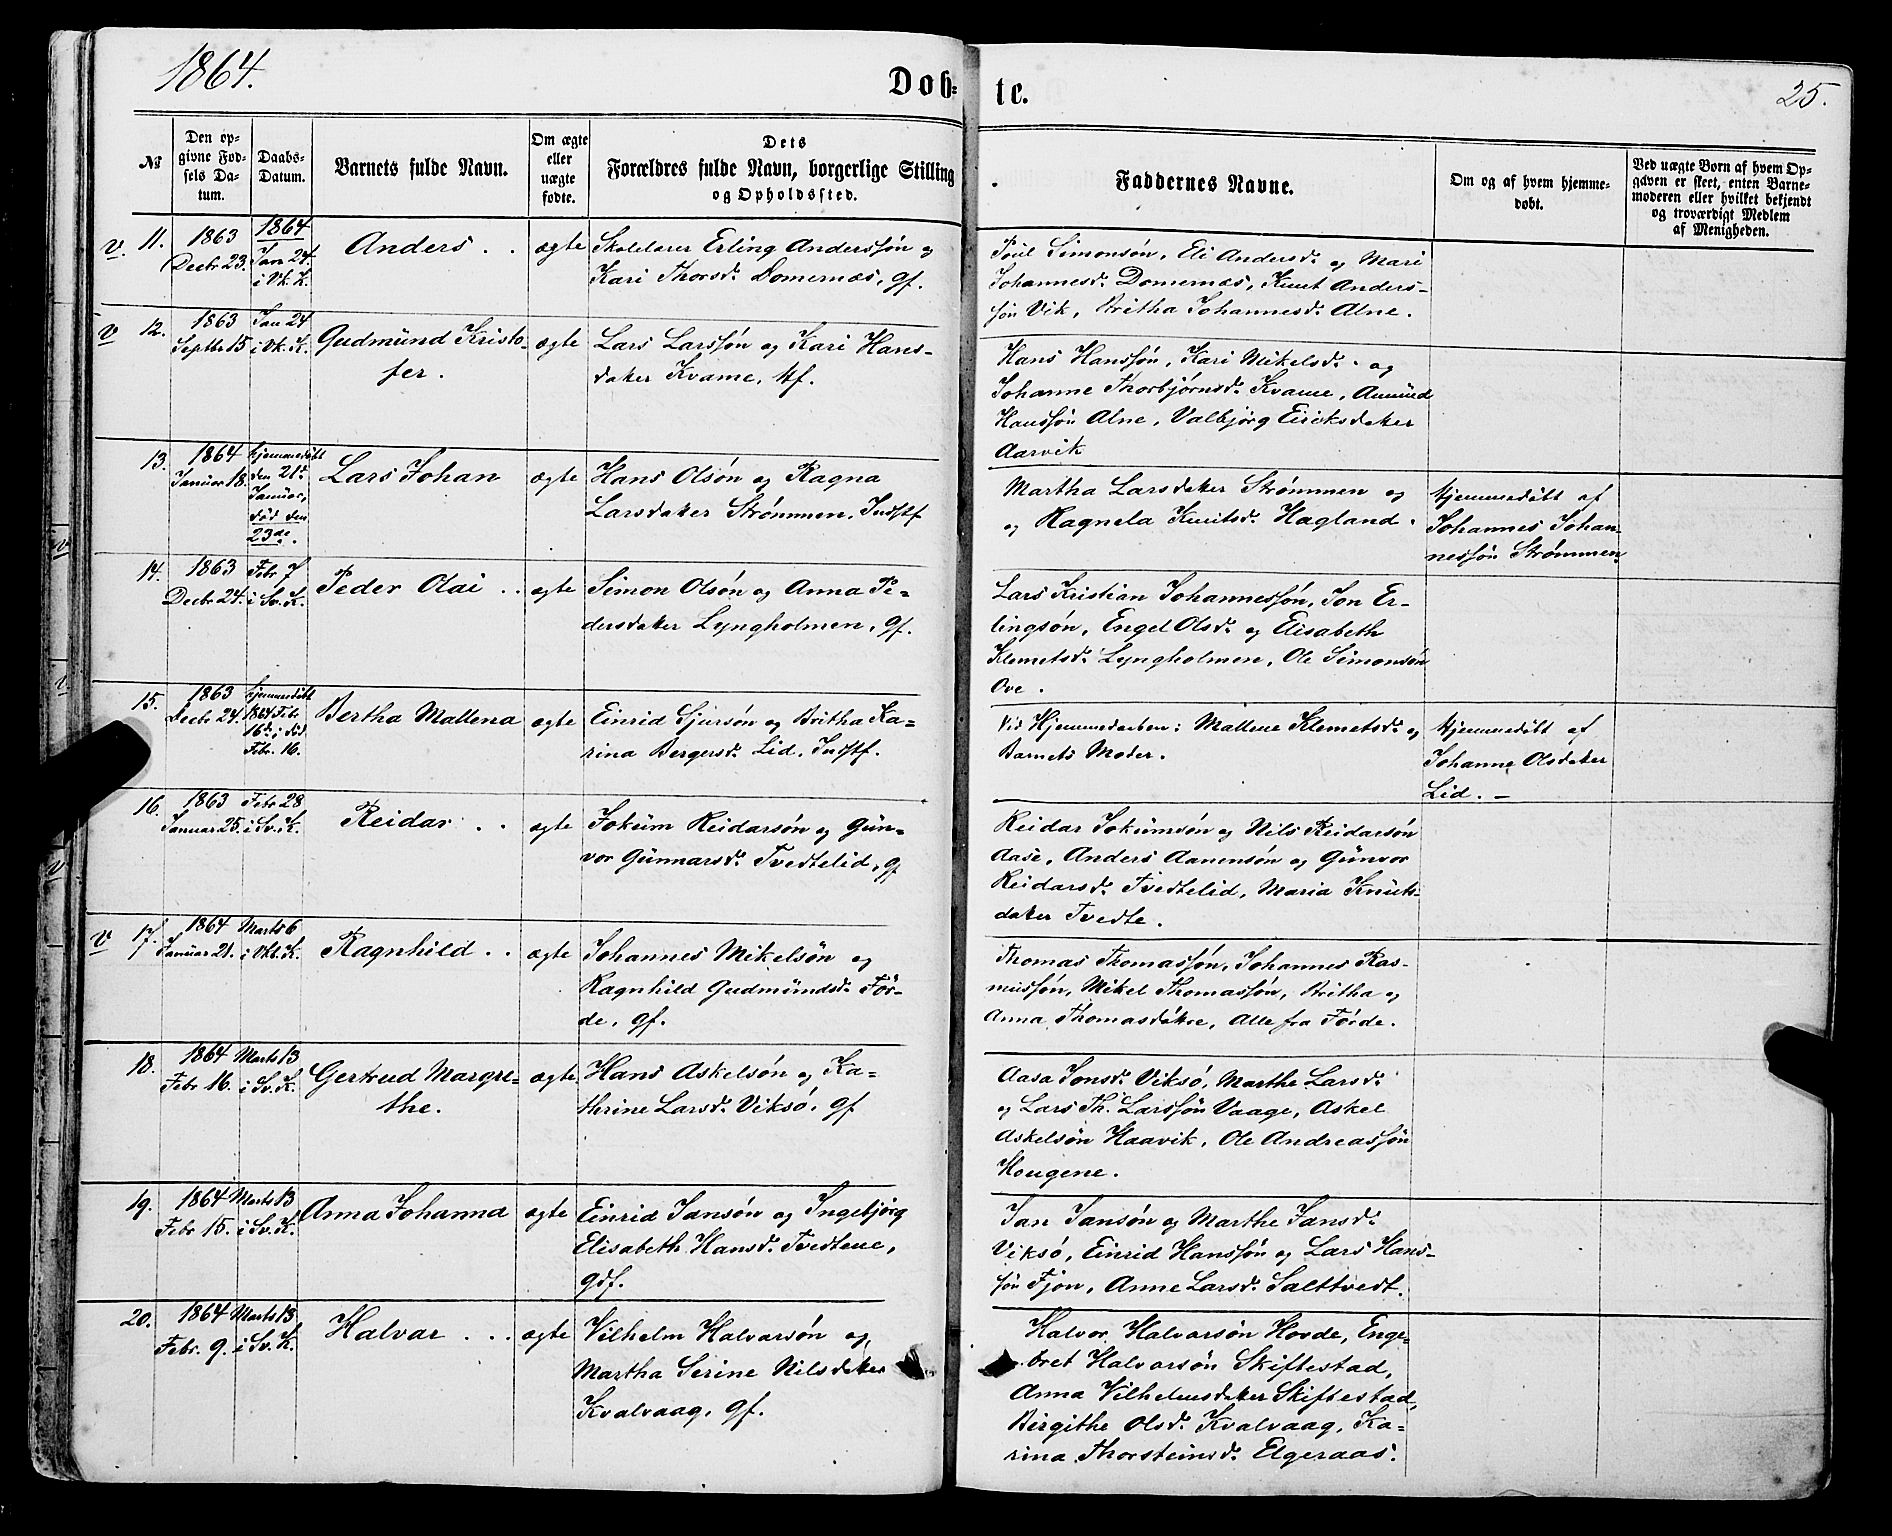 1864.
Døb=
te.
25.
№
Den op-
givne Fød-
sels Da-
tum.
Daabs-
Datum.
Barnets fulde Navn.
Om ægte
eller
uægte
fødte.
Dets
Forældres fulde Navn, borgerlige Stilling
og Opholdssted.
Faddernes Navne.
Om og af hvem hjemme-
døbt.
Ved uægte Børn af hvem Op-
gaven er skeet, enten Barne-
moderen eller hvilket bekjendt
og troværdigt Medlem
af Menigheden.
v. 11.
1863
Decbr 23.
1864
Jan 24.
i Vk. K.
Anders . .
ægte
Skolelærer Erling Anderssøn og
Kari Thorsdr. Domernæs, gf.
Poul Simonsøn, Eli Andersdr. og Mari
Johannesdr. Domernæs, Knut Anders-
søn Vik, Britha Johannesdr. Alne.
v 12.
1863
Septbr 15
Jan 24
i Vk. K.
Gudmund Kristo-
fer.
ægte
Lars Larssøn og Kari Hans-
datter Kvame, Hf.
Hans Hanssøn, Kari Mikelsdr. og
Johanne Thorbjørnsdr. Kvame, Amund
Hanssøn Alne, Valbjørg Eiriksdatter
Aarvik
13.
1864
Januar 18.
Hjemmedøbt
den 21de
Januar,
død den
23de.
Lars Johan
ægte
Hans Olsøn og Ragna
Larsdatter Strømmen, Indstf
Martha Larsdatter Strømmen og
og Ragnela Knutsdr. Hagland.
Hjemmedøbt af
Johannes Johan-
nessøn Strømmen.
14.
1863
Decbr 24.
Febr 7
i Sv. K.
Peder Olai . .
ægte
Simon Olsøn og Anna Pe-
dersdatter Lyngholmen, gf.
Lars Kristian Johannessøn, Jon Er-
lingsøn, Engel Olsdr. og Elisabeth
Klemetsdr. Lyngholmen, Ole Simonsøn
Ove.
15.
1863
Decbr 24.
Hjemmedøbt
1864 Febr
16de; død
Febr. 16.
Bertha Mallena
ægte
Einrid Sjursøn og Britha Ka-
rina Bergersdr. Lid, Indstf.
Vid Hjemmedaaben: Mallene Klemetsdr. og
Barnets Moder.
Hjemmedøbt af
Johanne Olsdatter
Lid. —
16.
1863
Januar 25.
Febr 28
i Sv. K.
Reidar . .
ægte
Jokum Reidarsøn og Gun-
vor Gunnarsdr. Tvedtelid, gf
Reidar Jokumsøn og Nils Reidarsøn
Aase, Anders Aanensøn og Gunvor
Reidarsdr. Tvedtelid, Maria Knuts-
datter Tvedte.
v 17.
1864
Januar 21.
Marts 6
i Vkb. K.
Ragnhild . .
ægte
Johannes Mikelsøn og
Ragnhild Gudmundsdr. För-
de, gf.
Thomas Thomassøn, Johannes Ras-
mussøn, Mikel Thomassøn, Britha og
Anna Thomasdøtre, Alle fra Förde.
18.
1864
Febr 16.
Marts 13
i Sv. K.
Gertrud Margre-
the.
ægte
Hans Askelsøn og Ka-
thrine Larsdr. Viksö, gf
Aasa Jonsdr. Viksö, Marthe Larsdr.
og Lars Th. Larssøn Vaage, Askel
Askelsøn Haavik, Ole Andreassøn
Hougene.
19.
1864
Febr 15.
Marts 13
i Sv. K.
Anna Johanna
ægte
Einrid Jansøn og Ingebjørg
Elisabeth Hansdr. Tvedtene,
gdf.
Jan Jansøn og Marthe Jansdr.
Viksö, Einrid Hanssøn og Lars Hans-
søn Fjon, Anne Larsdr. Salttvedt.
20.
1864
Febr. 9.
Marts 13
i Sv. K.
Halvar . . .
ægte
Vilhelm Halvarsøn og
Martha Serine Nilsdatter
Kvalvaag, gf.
Halvor Halvarsøn Hovde, Enge-
bret Halvarsøn Skiftestad,
Anna Vilhelmsdatter Skiftestad,
Birgithe Olsdr. Kvalvaag, Ka-
rina Thorsteinsdr. Elgeraas.